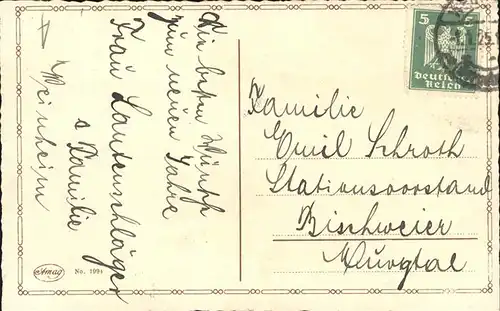 Die besten Wünsche
zum neuen Jahre
Frau Lautenschläger
s Familie
Weinheim
Familie
Emil Schroth
Stationsvorstand
Bischweier
Murgtal
5
Deutsches
Reich
25
Amag
No. 1091